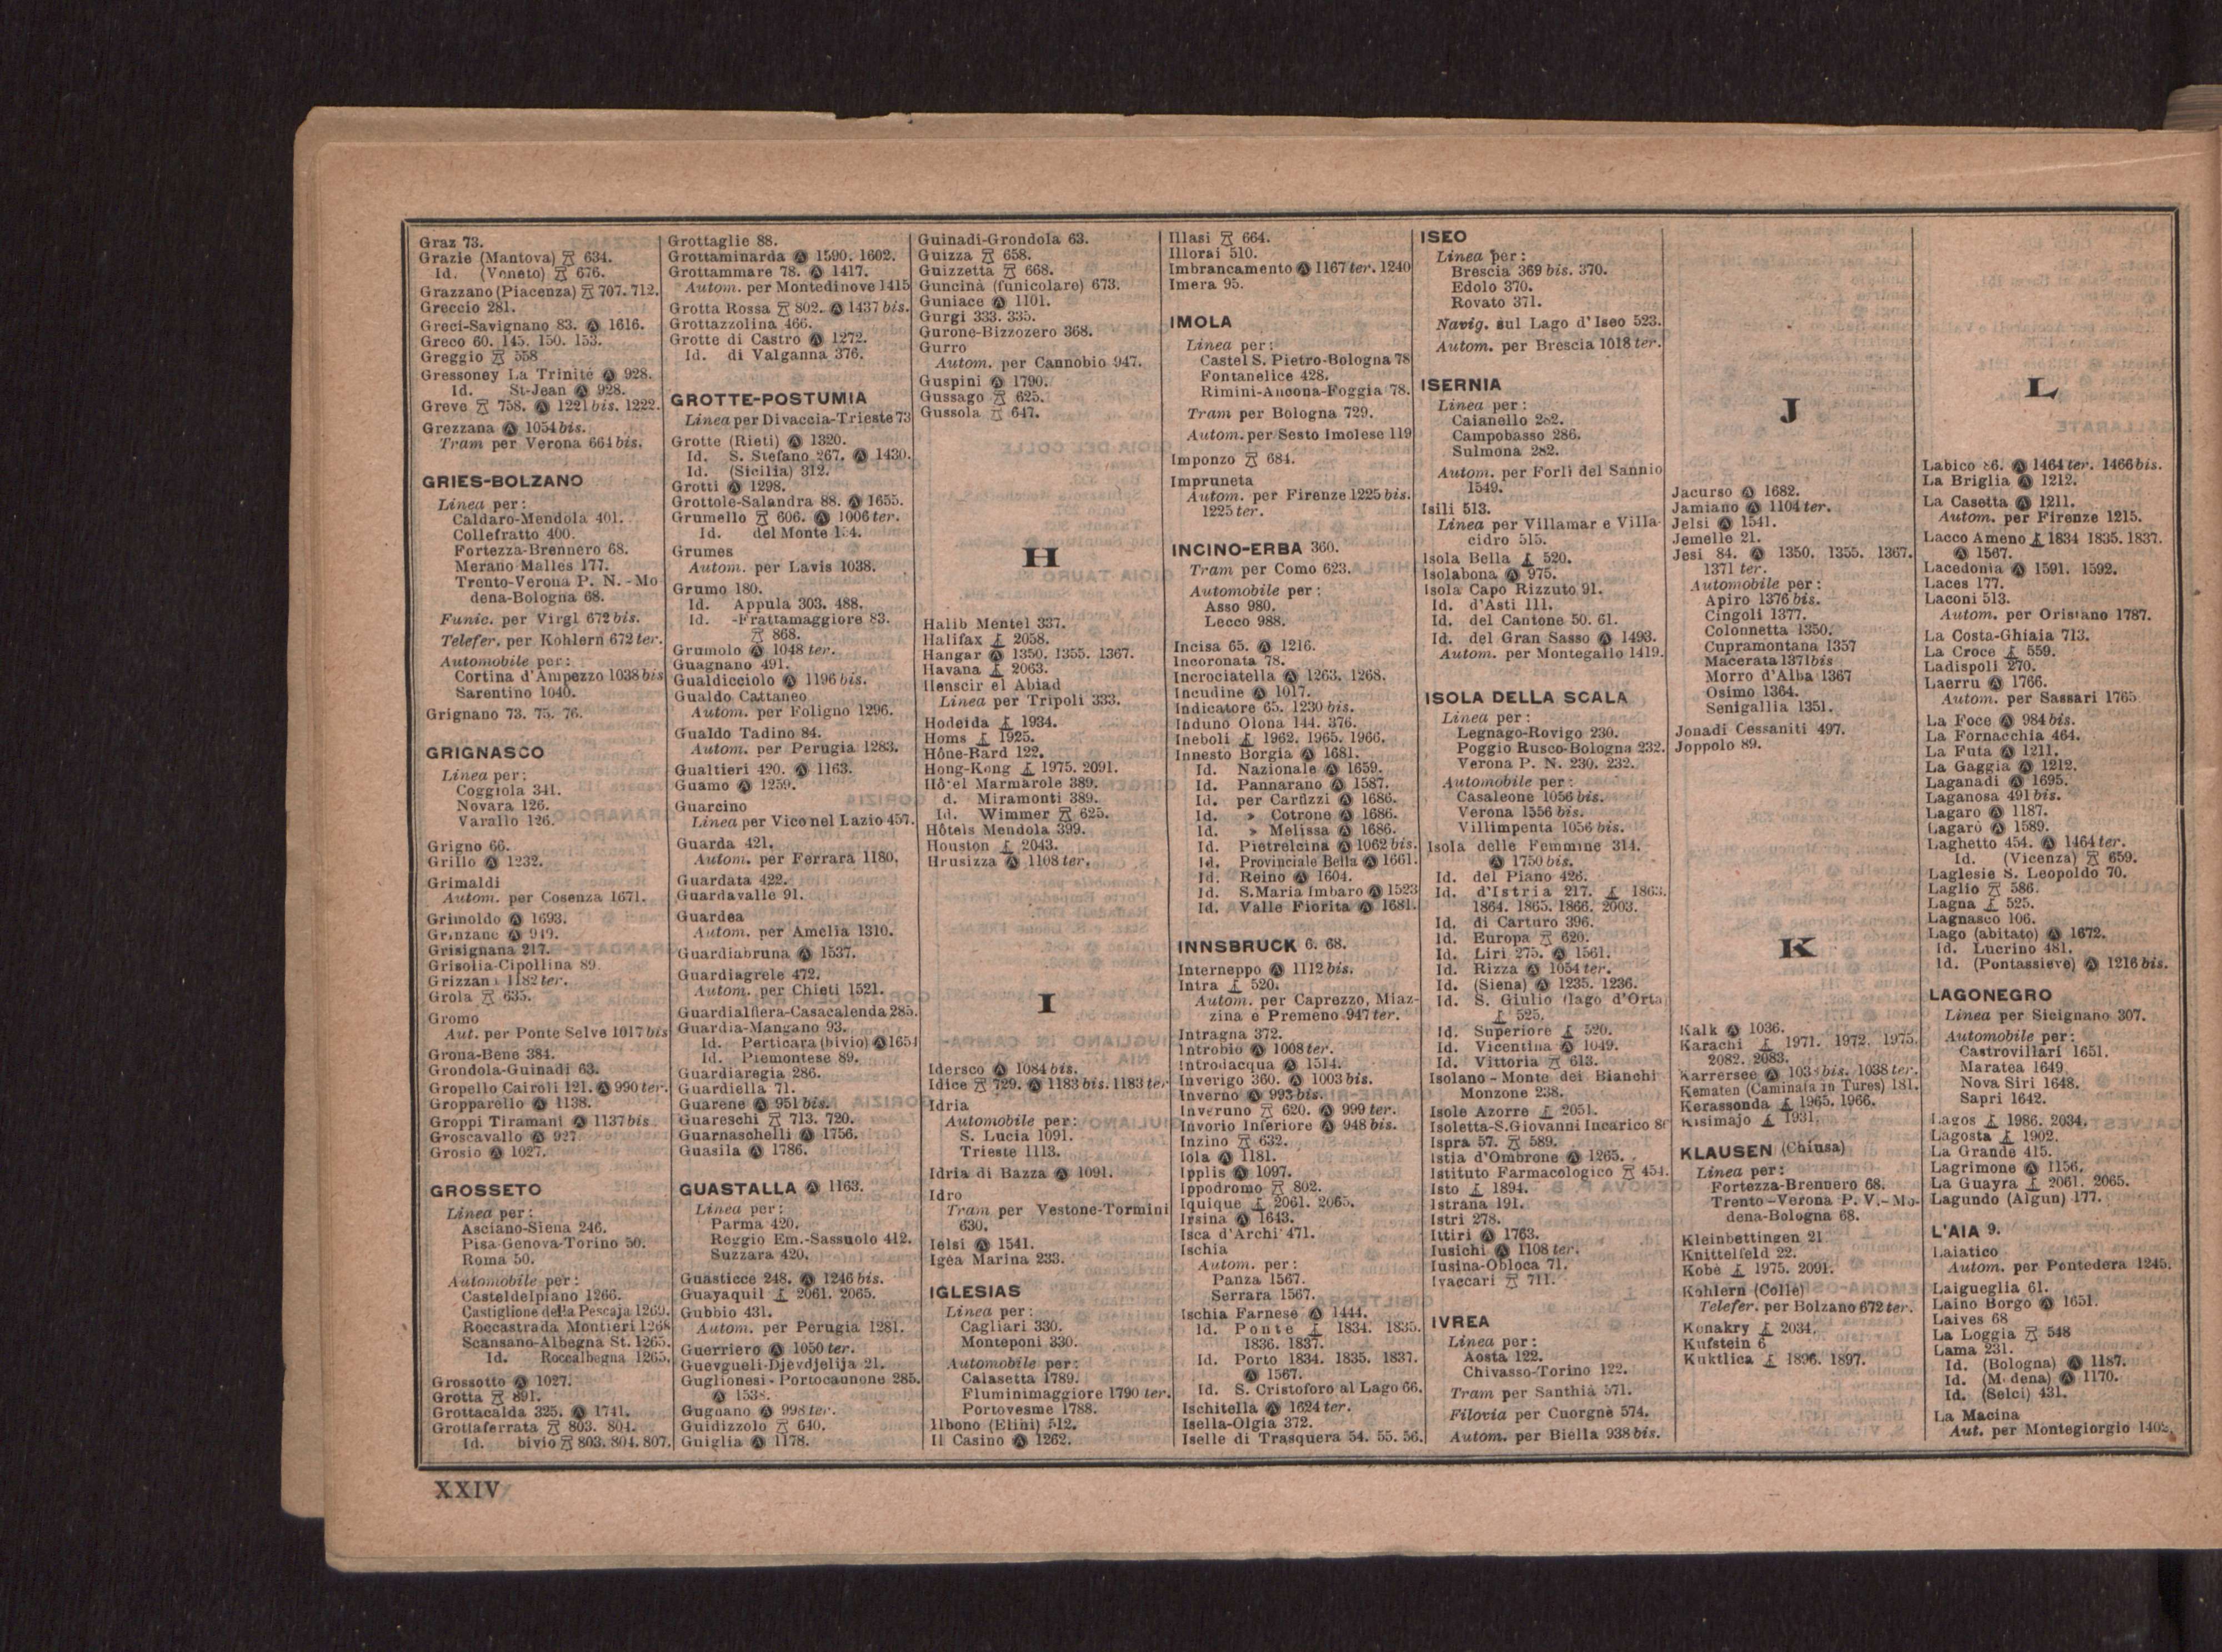 Graz 73.
Grazie (Mantova) 634.
Id. (Veneto) 676.
Grazzano (Piacenza) 707. 712.
Greccio 281.
Greci-Savignano 83. Ⓐ 1616.
Greco 60. 145. 150. 153.
Greggio 558
Gressoney La Trinité Ⓐ 928.
Id. St-Jean Ⓐ 928.
Greve 758. Ⓐ 1221 bis. 1222.
Grezzana Ⓐ 1054 bis.
Tram per Verona 664 bis.
GRIES-BOLZANO
Linea per:
Caldaro-Mendola 401.
Collefratto 400.
Fortezza-Brennero 68.
Merano Malles 177.
Trento-Verona P. N. - Mo
dena-Bologna 68.
Funic. per Virgl 672 bis.
Telefer. per Kohlern 672 ter.
Automobile per:
Cortina d'Ampezzo 1038 bis
Sarentino 1040.
Grignano 73. 75. 76.
GRIGNASCO
Linea per:
Coggiola 341.
Novara 126.
Varallo 126.
Grigno 66.
Grillo Ⓐ 1232.
Grimaldi
Autom. per Cosenza 1671.
Grimoldo Ⓐ 1693.
Grinzane Ⓐ 949.
Grisignana 217.
Grisolia-Cipollina 89.
Grizzana 1182 ter.
Grola 635.
Gromo
Aut. per Ponte Selve 1017 bis
Grona-Bene 384.
Grondola-Guinadi 63.
Gropello Cairoli 121. Ⓐ 990 ter.
Gropparello Ⓐ 1138.
Groppi Tiramani Ⓐ 1137 bis.
Groscavallo Ⓐ 927
Grosio Ⓐ 1027.
GROSSETO
Linea per:
Asciano-Siena 246.
Pisa-Genova-Torino 50.
Roma 50.
Automobile per:
Casteldelpiano 1266.
Castiglione della Pescaja 1269.
Roccastrada Montieri 1268
Scansano-Albegna St. 1265.
Id. Roccalbegna 1265.
Grossotto Ⓐ 1027.
Grotta 891.
Grottacalda 325. Ⓐ 1741.
Grottaferrata 803. 804.
Id. bivio 803. 804. 807.
Grottaglie 88.
Grottaminarda Ⓐ 1590. 1602.
Grottammare 78. Ⓐ 1417.
Autom. per Montedinove 1415
Grotta Rossa 802. Ⓐ 1437 bis.
Grottazzolina 466.
Grotte di Castro Ⓐ 1272.
Id. di Valganna 376.
GROTTE-POSTUMIA
Linea per Divaccia-Trieste 73
Grotte (Rieti) Ⓐ 1320.
Id. S. Stefano 267. Ⓐ 1430.
Id. (Sicilia) 312.
Grotti Ⓐ 1298.
Grottole-Salandra 88. Ⓐ 1655.
Grumello 606. Ⓐ 1006 ter.
Id. del Monte 154.
Grumes
Autom. per Lavis 1038.
Grumo 180.
Id. Appula 303. 488.
Id. -Frattamaggiore 83.
868.
Grumolo Ⓐ 1048 ter.
Guagnano 491.
Gualdicciolo Ⓐ 1196 bis.
Gualdo Cattaneo
Autom. per Foligno 1296.
Gualdo Tadino 84.
Autom. per Perugia 1283.
Gualtieri 420. Ⓐ 1163.
Guamo Ⓐ 1259.
Guarcino
Linea per Vico nel Lazio 457.
Guarda 421.
Autom. per Ferrara 1180.
Guardata 422.
Guardavalle 91.
Guardea
Autom. per Amelia 1310.
Guardiabruna Ⓐ 1537.
Guardiagrele 472.
Autom. per Chieti 1521.
Guardialfiera-Casacalenda 285.
Guardia-Mangano 93.
Id. Perticara (bivio) Ⓐ 1651
Id. Piemontese 89.
Guardiaregia 286.
Guardiella 71.
Guarene Ⓐ 951 bis.
Guareschi 713. 720.
Guarnaschelli Ⓐ 1756.
Guasila Ⓐ 1786.
GUASTALLA Ⓐ 1163.
Linea per:
Parma 420.
Reggio Em.-Sassuolo 412.
Suzzara 420.
Guasticce 248. Ⓐ 1246 bis.
Guayaquil 2061. 2065.
Gubbio 431.
Autom. per Perugia 1281.
Guerriero Ⓐ 1050 ter.
Guevgueli-Djevdjelija 21.
Guglionesi - Portocannone 285.
Ⓐ 1538.
Gugnano Ⓐ 998 ter.
Guidizzolo 640.
Guiglia Ⓐ 1178.
Guinadi-Grondola 63.
Guizza 658.
Guizzetta 668.
Guncinà (funicolare) 673.
Guniace Ⓐ 1101.
Gurgi 333. 335.
Gurone-Bizzozero 368.
Gurro
Autom. per Cannobio 947.
Guspini Ⓐ 1790.
Gussago 625.
Gussola 647.
H
Halib Mentel 337.
Halifax 2058.
Hangar Ⓐ 1350. 1355. 1367.
Havana 2063.
Henscir el Abiad
Linea per Tripoli 333.
Hodeida 1934.
Homs 1925.
Hône-Bard 122.
Hong-Kong 1975. 2091.
Hôtel Marmarole 389.
d. Miramonti 389.
Id. Wimmer 625.
Hôtels Mendola 399.
Houston 2043.
Hrusizza Ⓐ 1108 ter.
I
Idersco Ⓐ 1084 bis.
Idice 729. Ⓐ 1183 bis. 1183 ter
Idria
Automobile per:
S. Lucia 1091.
Trieste 1113.
Idria di Bazza Ⓐ 1091.
Idro
Tram per Vestone-Tormini
630.
Ielsi Ⓐ 1541.
Igea Marina 233.
IGLESIAS
Linea per:
Cagliari 330.
Monteponi 330.
Automobile per:
Calasetta 1789.
Fluminimaggiore 1790 ter.
Portovesme 1788.
Ilbono (Elini) 512.
Il Casino Ⓐ 1262.
Illasi 664.
Illorai 510.
Imbrancamento Ⓐ 1167 ter. 1240
Imera 95.
IMOLA
Linea per:
Castel S. Pietro-Bologna 78
Fontanelice 428.
Rimini-Ancona-Foggia 78.
Tram per Bologna 729.
Autom. per Sesto Imolese 119
Imponzo 684.
Impruneta
Autom. per Firenze 1225 bis.
1225 ter.
INCINO-ERBA 360.
Tram per Como 623.
Automobile per:
Asso 980.
Lecco 988.
Incisa 65. Ⓐ 1216.
Incoronata 78.
Incrociatella Ⓐ 1263. 1268.
Incudine Ⓐ 1017.
Indicatore 65. 1230 bis.
Induno Olona 144. 376.
Ineboli 1962. 1965. 1966.
Innesto Borgia Ⓐ 1681.
Id. Nazionale Ⓐ 1659.
Id. Pannarano Ⓐ 1587.
Id. per Carfizzi Ⓐ 1686.
Id. » Cotrone Ⓐ 1686.
Id. » Melissa Ⓐ 1686.
Id. Pietrelcina Ⓐ 1062 bis.
Id. Provinciale Bella Ⓐ 1661.
Id. Reino Ⓐ 1604.
Id. S. Maria Imbaro Ⓐ 1523
Id. Valle Fiorita Ⓐ 1681.
INNSBRUCK 6. 68.
Interneppo Ⓐ 1112 bis.
Intra 520.
Autom. per Caprezzo, Miaz-
zina e Premeno 947 ter.
Intragna 372.
Introbio Ⓐ 1008 ter.
Introdacqua Ⓐ 1514.
Inverigo 360. Ⓐ 1003 bis.
Inverno Ⓐ 993 bis.
Inveruno 620. Ⓐ 999 ter.
Invorio Inferiore Ⓐ 948 bis.
Inzino 632.
Iola Ⓐ 1181.
Ipplis Ⓐ 1097.
Ippodromo 802.
Iquique 2061. 2065.
Irsina Ⓐ 1643.
Isca d'Archi 471.
Ischia
Autom. per:
Panza 1567.
Serrara 1567.
Ischia Farnese Ⓐ 1444.
Id. Ponte 1834. 1835.
1836. 1837.
Id. Porto 1834. 1835. 1837.
Ⓐ 1567.
Id. S. Cristoforo al Lago 66.
Ischitella Ⓐ 1624 ter.
Isella-Olgia 372.
Iselle di Trasquera 54. 55. 56.
ISEO
Linea per:
Brescia 369 bis. 370.
Edolo 370.
Rovato 371.
Navig. sul Lago d'Iseo 523.
Autom. per Brescia 1018 ter.
ISERNIA
Linea per:
Caianello 282.
Campobasso 286.
Sulmona 282.
Autom. per Forlì del Sannio
1549.
Isili 513.
Linea per Villamar e Villa-
cidro 515.
Isola Bella 520.
Isolabona Ⓐ 975.
Isola Capo Rizzuto 91.
Id. d'Asti 111.
Id. del Cantone 50. 61.
Id. del Gran Sasso Ⓐ 1493.
Autom. per Montegallo 1419.
ISOLA DELLA SCALA
Linea per:
Legnago-Rovigo 230.
Poggio Rusco-Bologna 232.
Verona P. N. 230. 232.
Automobile per:
Casaleone 1056 bis.
Verona 1556 bis.
Villimpenta 1056 bis.
Isola delle Femmine 314.
Ⓐ 1750 bis.
Id. del Piano 426.
Id. d'Istria 217. 1863.
1864. 1865. 1866. 2003.
Id. di Carturo 396.
Id. Europa 620.
Id. Liri 275. Ⓐ 1561.
Id. Rizza Ⓐ 1054 ter.
Id. (Siena) Ⓐ 1235. 1236.
Id. S. Giulio (lago d'Orta
525.
Id. Superiore 520.
Id. Vicentina Ⓐ 1049.
Id. Vittoria 613.
Isolano - Monte dei Bianchi
Monzone 238.
Isole Azorre 2051.
Isoletta-S.Giovanni Incarico 86
Ispra 57. 589.
Istia d'Ombrone Ⓐ 1265.
Istituto Farmacologico 454.
Isto 1894.
Istrana 191.
Istri 278.
Ittiri Ⓐ 1763.
Iusichi Ⓐ 1108 ter.
Iusina-Obloca 71.
Ivaccari 711.
IVREA
Linea per:
Aosta 122.
Chivasso-Torino 122.
Tram per Santhià 571.
Filovia per Cuorgnè 574.
Autom. per Biella 938 bis.
J
Jacurso Ⓐ 1682.
Jamiano Ⓐ 1104 ter.
Jelsi Ⓐ 1541.
Jemelle 21.
Jesi 84. Ⓐ 1350. 1355. 1367.
1371 ter.
Automobile per:
Apiro 1376 bis.
Cingoli 1377.
Colonnetta 1350.
Cupramontana 1357
Macerata 1371 bis
Morro d'Alba 1367
Osimo 1364.
Senigallia 1351.
Jonadi Cessaniti 497.
Joppolo 89.
K
Kalk Ⓐ 1036.
Karachi 1971. 1972. 1975.
2082. 2083.
Karrersee Ⓐ 1038 bis. 1038 ter.
Kematen (Caminata in Tures) 181.
Kerassonda 1965. 1966.
Kisimajo 1931.
KLAUSEN (Chiusa)
Linea per:
Fortezza-Brennero 68.
Trento-Verona P. V.-Mo-
dena-Bologna 68.
Kleinbettingen 21
Knittelfeld 22.
Kobè 1975. 2091.
Kohlern (Colle)
Telefer. per Bolzano 672 ter.
Konakry 2034.
Kufstein 6
Kuktlica 1896. 1897.
L
Labico 86. Ⓐ 1464 ter. 1466 bis.
La Briglia Ⓐ 1212.
La Casetta Ⓐ 1211.
Autom. per Firenze 1215.
Lacco Ameno 1834 1835. 1837.
Ⓐ 1567.
Lacedonia Ⓐ 1591. 1592.
Laces 177.
Laconi 513.
Autom. per Oristano 1787.
La Costa-Ghiaia 713.
La Croce 559.
Ladispoli 270.
Laerru Ⓐ 1766.
Autom. per Sassari 1765
La Foce Ⓐ 984 bis.
La Fornacchia 464.
La Futa Ⓐ 1211.
La Gaggia Ⓐ 1212.
Laganadi Ⓐ 1695.
Laganosa 491 bis.
Lagaro Ⓐ 1187.
Lagarò Ⓐ 1589.
Laghetto 454. Ⓐ 1464 ter.
Id. (Vicenza) 659.
Laglesie S. Leopoldo 70.
Laglio 586.
Lagna 525.
Lagnasco 106.
Lago (abitato) Ⓐ 1672.
Id. Lucrino 481.
Id. (Pontassieve) Ⓐ 1216 bis.
LAGONEGRO
Linea per Sicignano 307.
Automobile per:
Castrovillari 1651.
Maratea 1649.
Nova Siri 1648.
Sapri 1642.
Lagos 1986. 2034.
Lagosta 1902.
La Grande 415.
Lagrimone Ⓐ 1156.
La Guayra 2061. 2065.
Lagundo (Algun) 177.
L'AIA 9.
Laiatico
Autom. per Pontedera 1245.
Laigueglia 61.
Laino Borgo Ⓐ 1651.
Laives 68
La Loggia 548
Lama 231.
Id. (Bologna) Ⓐ 1187.
Id. (Modena) Ⓐ 1170.
Id. (Selci) 431.
La Macina
Aut. per Montegiorgio 1402.
XXIV